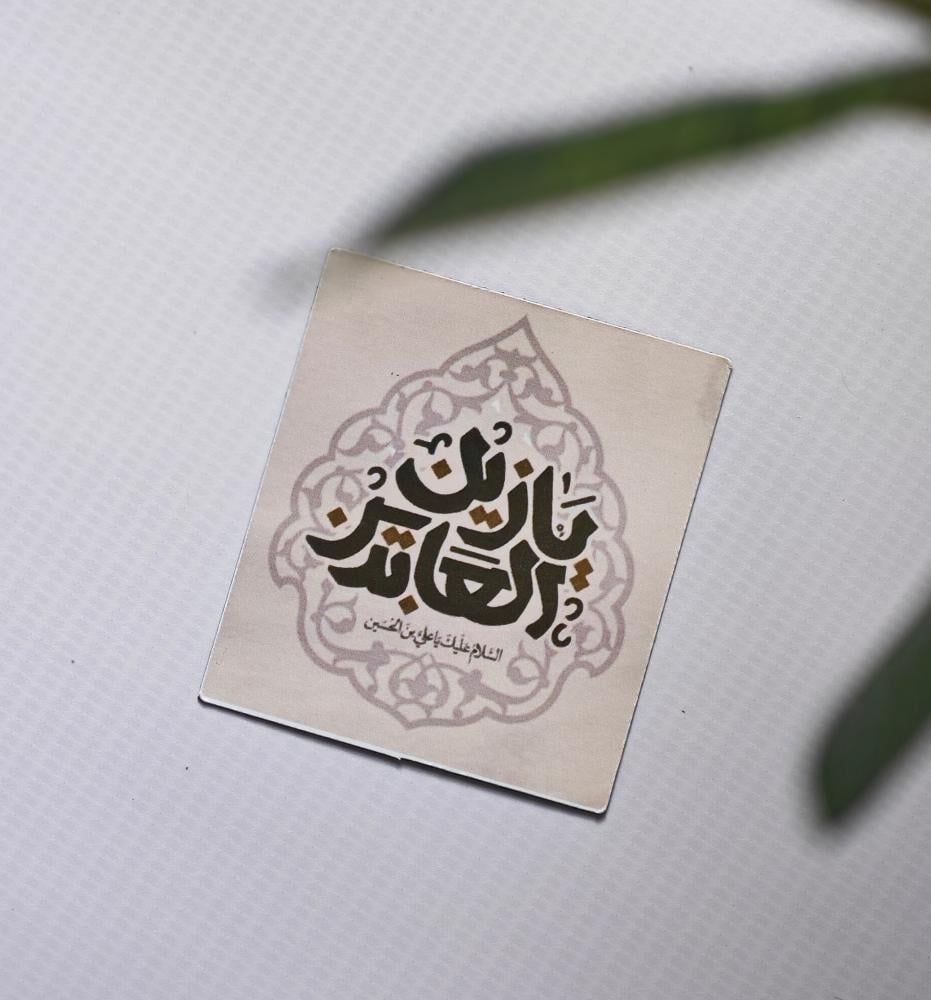 يا زين
العابدين
السلام عليك يا علي بن الحسين